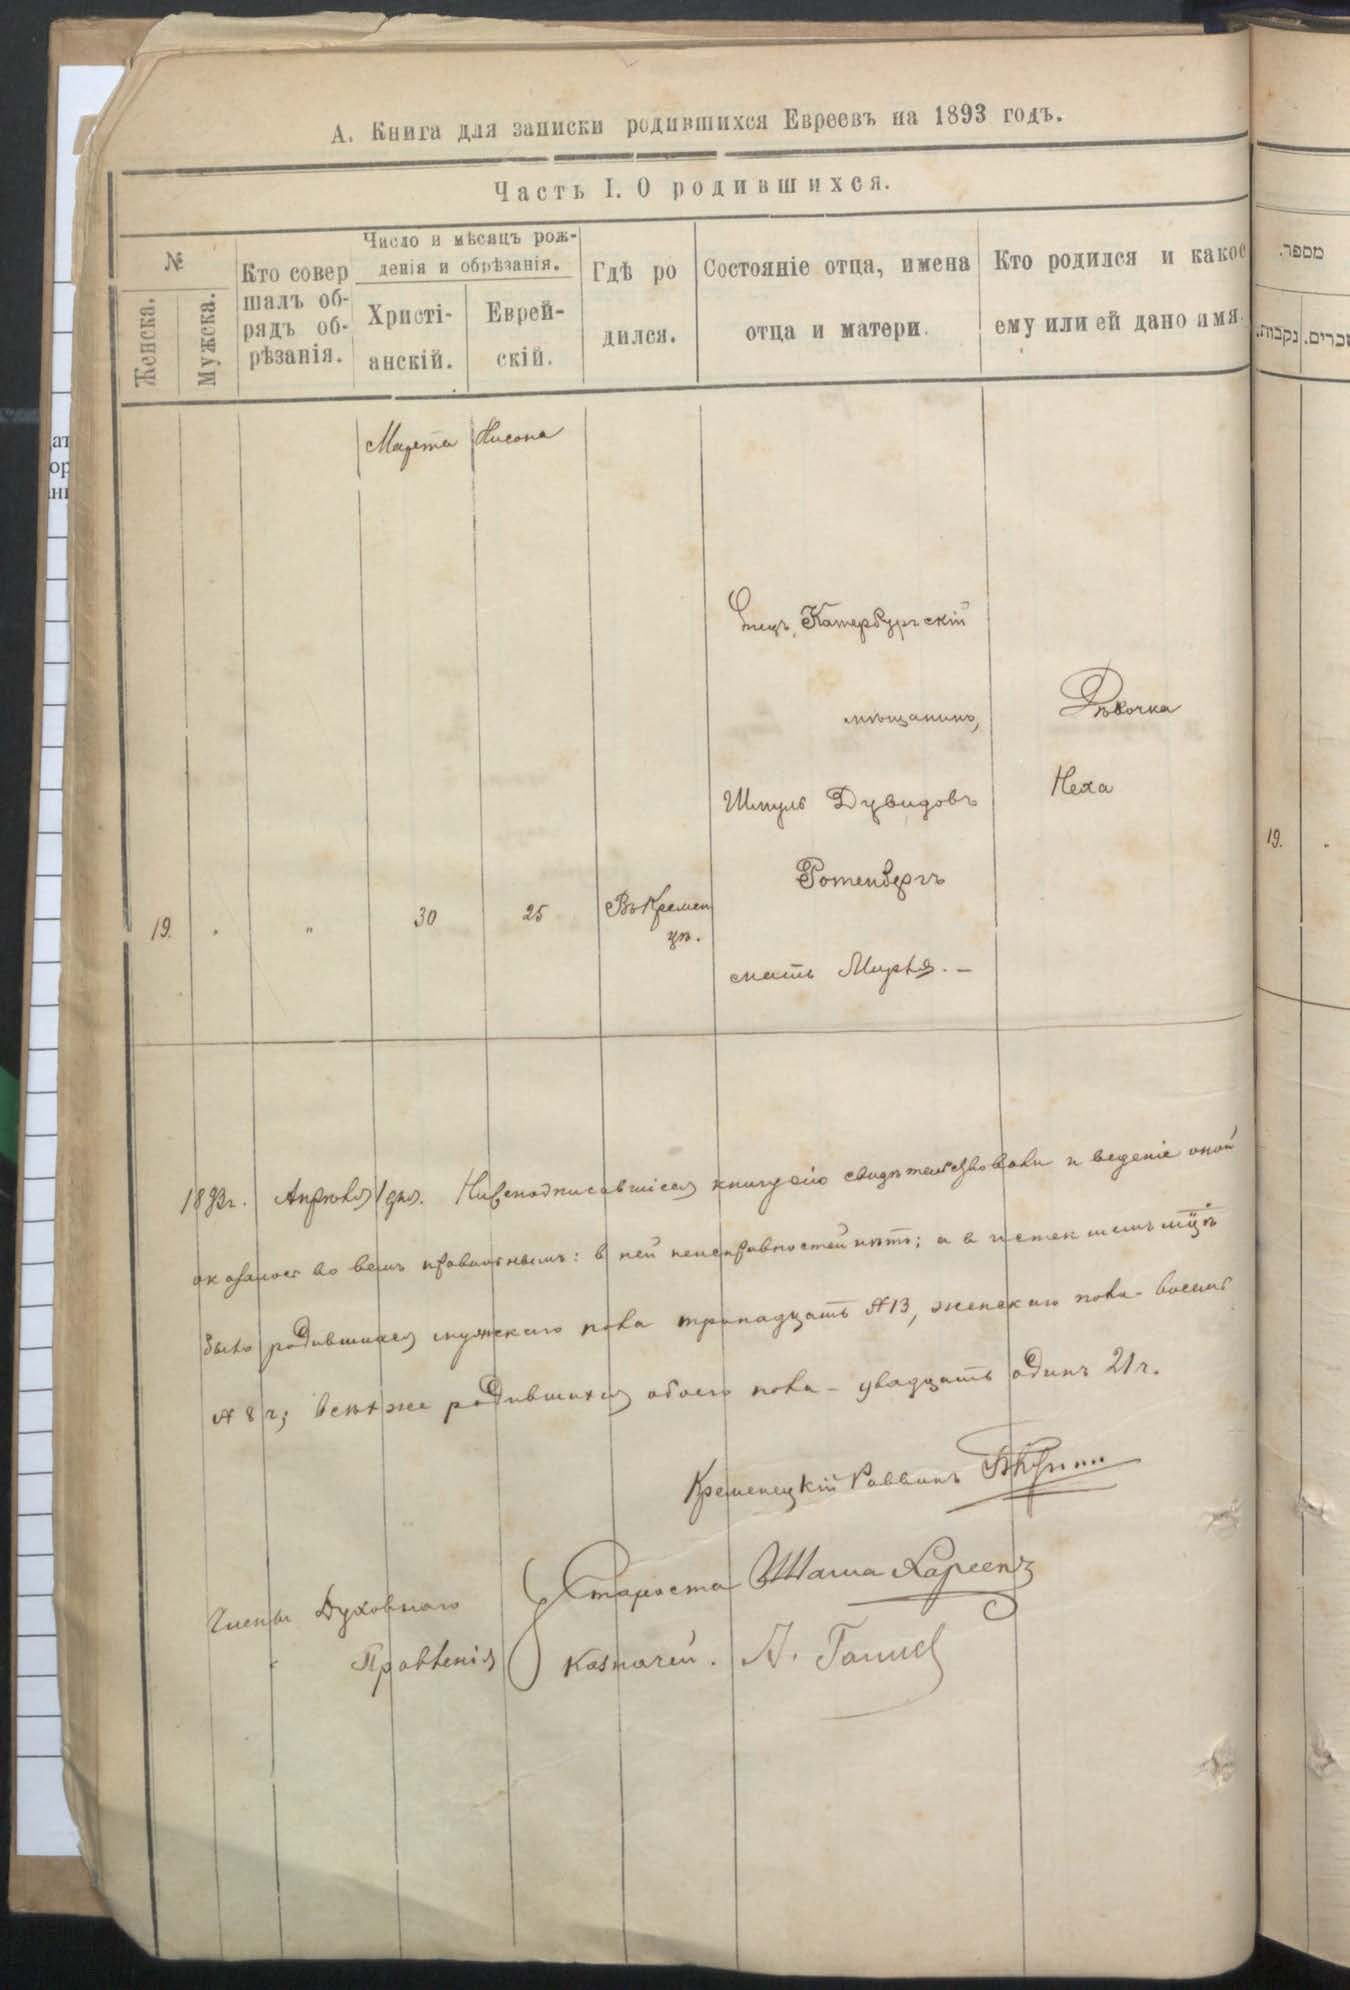 А. Книга для записки родившихся Евреевъ на 1893 годъ.
Часть I. О родившихся.
№
Женска.
Мужска.
Кто совер
шалъ об-
рядъ об-
рѣзанія.
Число и мѣсяцъ рож-
денія и обрѣзанія.
Христі-
анскій.
Еврей-
скій.
Гдѣ ро
дился.
Состояніе отца, имена
отца и матери.
Кто родился и какое
ему или ей дано имя.
מספר.
נקבות.
Марта
Нисона
Отецъ, Катербургскій
мѣщанинъ,
Шмуль Дувидовъ
Ротенбергъ
мать Мирля. –
Дѣвочка
Неха
19.
"
"
30
25
Въ Кремен
цѣ.
19.
1893г. Апрѣля 1 дня. Нижеподписавшіеся книгу сію свидѣтельствовали и веденіе оной
оказалось во всемъ правильнымъ: в ней неисправностей нѣтъ; а в истекшемъ мцѣ
было родившихся мужскаго пола тринадцать №13, женскаго пола – восемь
№ 8 ч; всѣхъ же родившихся обоего пола – двадцать одинъ 21 ч.
Кременецкій Раввинъ
Члены Духовнаго
Правленія
Староста Шама
Казначей. А.